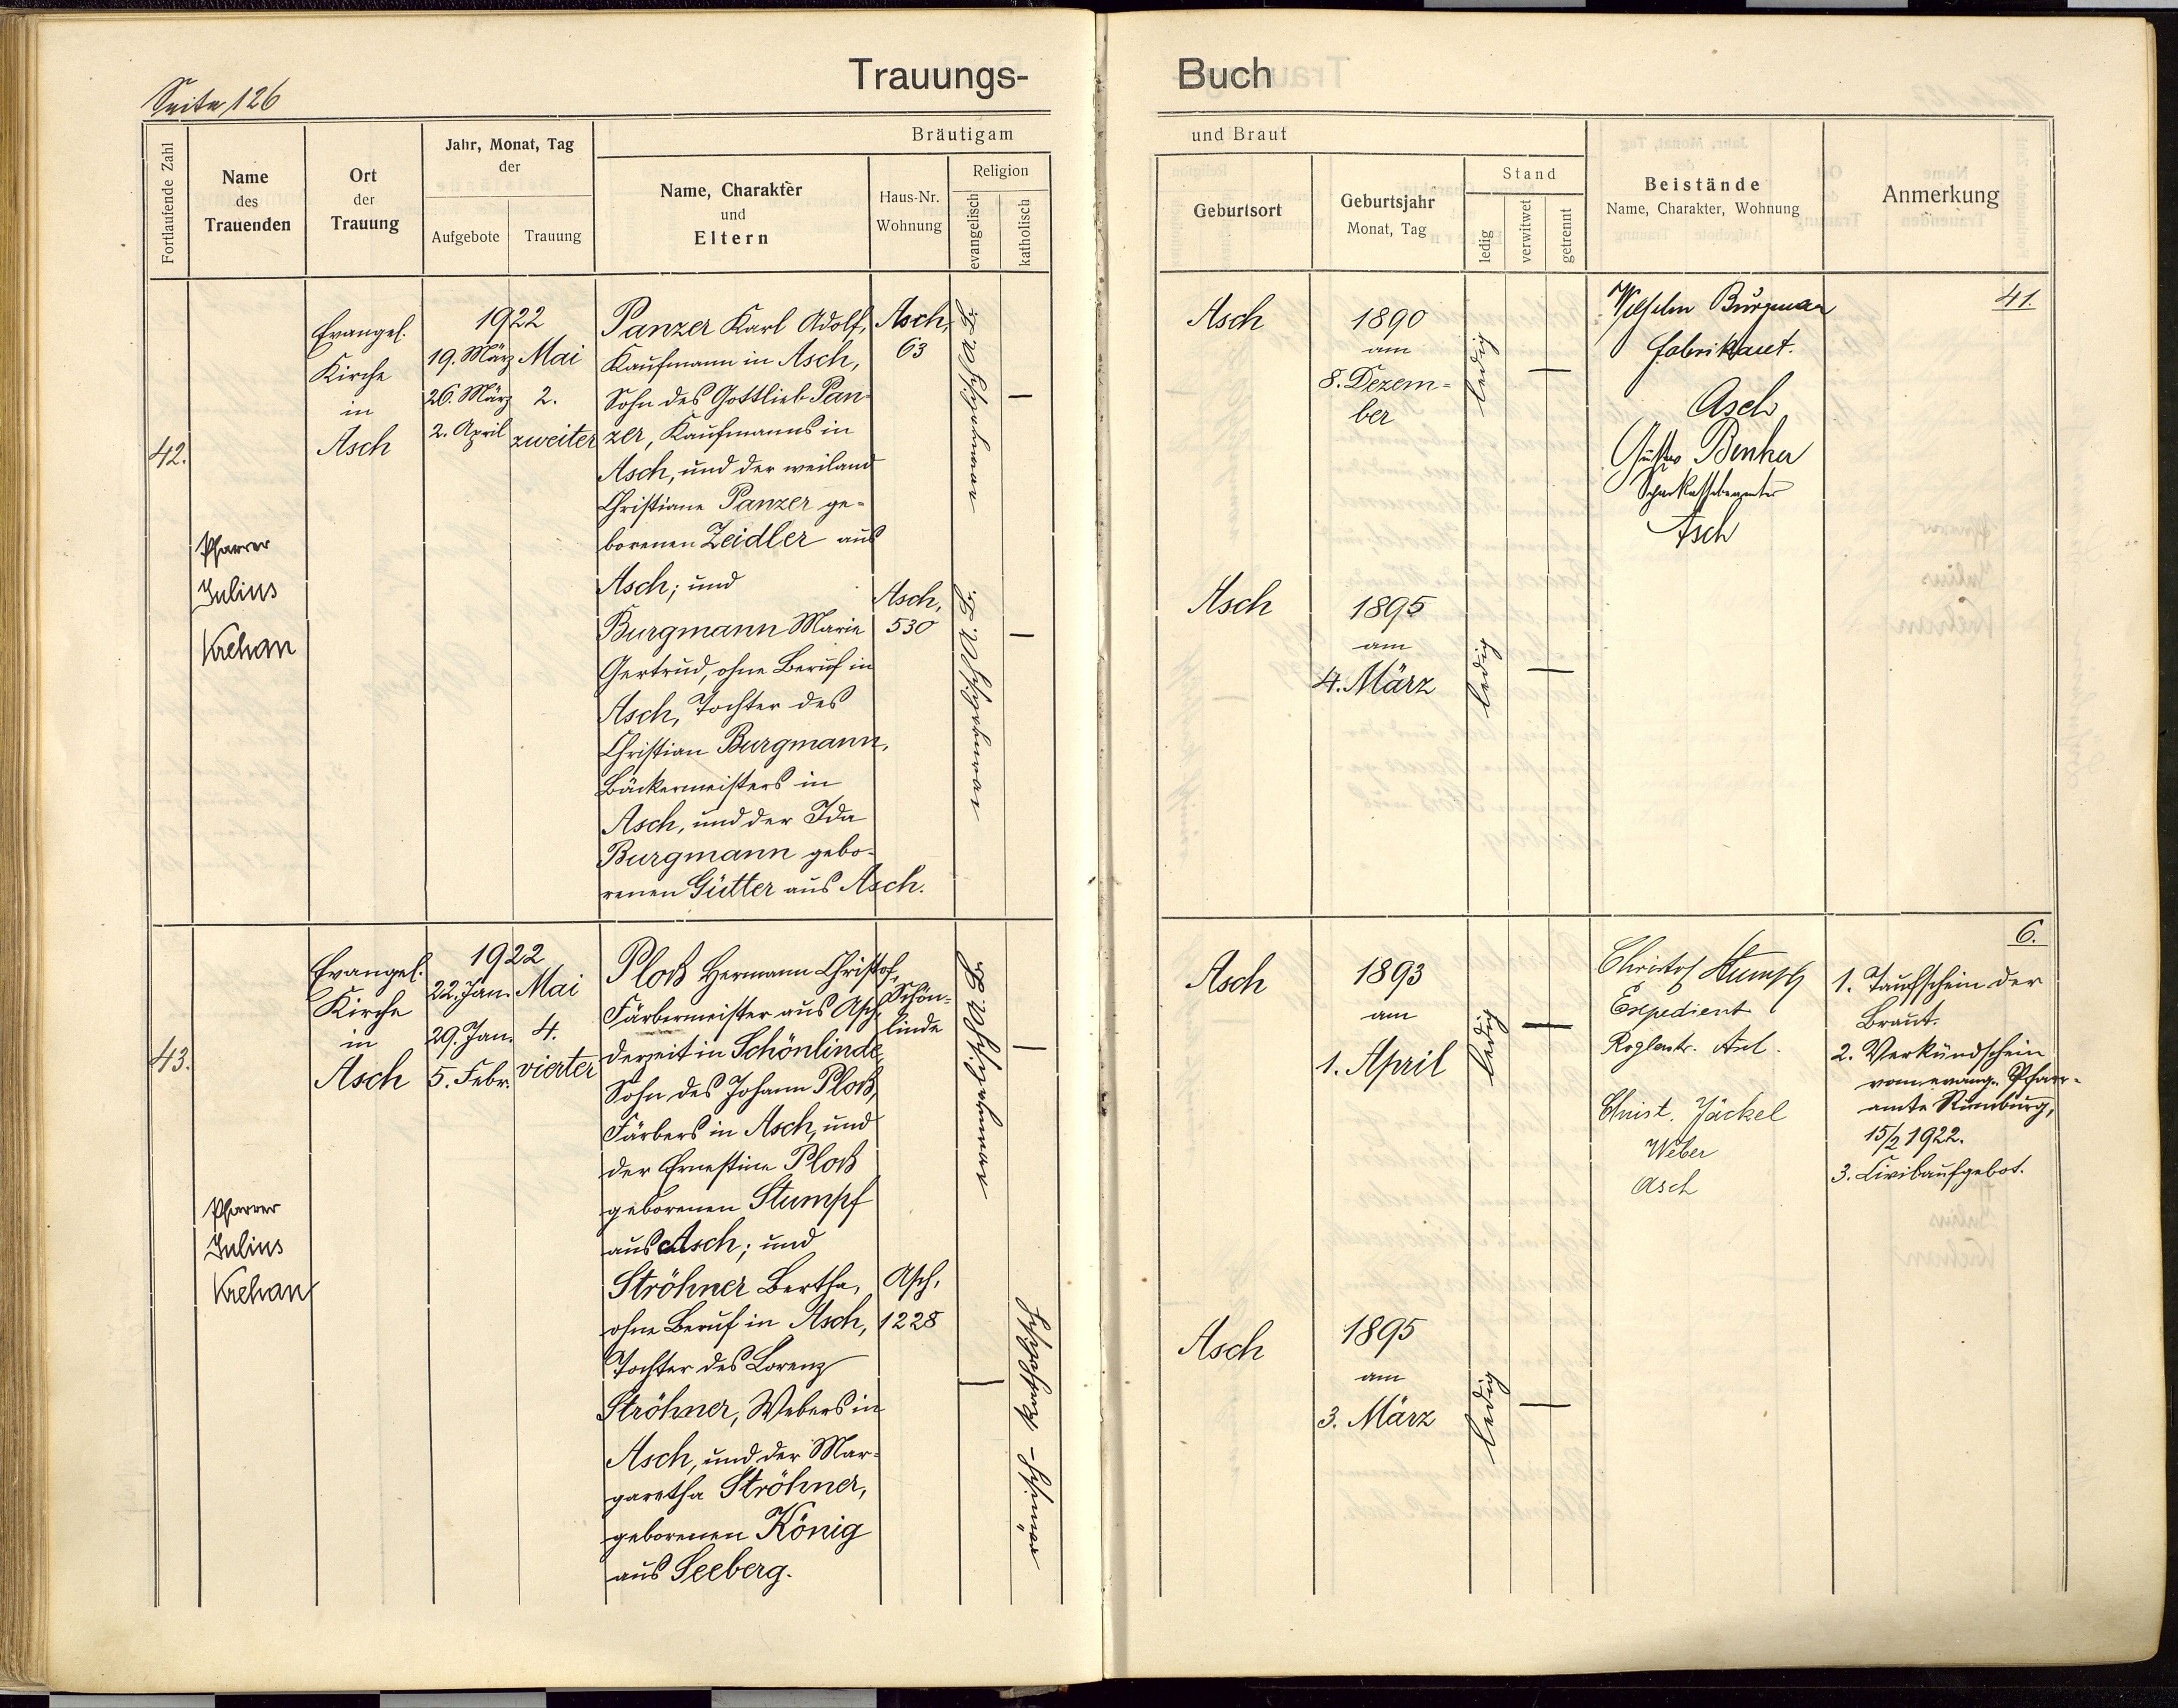 Seite 126
Trauungs-
Fortlaufende Zahl
Name
des
Trauenden
Ort
der
Trauung
Jahr, Monat, Tag
der
Aufgebote
Trauung
Bräutigam
Name, Charakter
und
Eltern
Haus-Nr.
Wohnung
Religion
evangelisch
katholisch
42.
Pfarrer
Julius
Krehan
Evangel.
Kirche
in
Asch
1922
19. März
26. März
2. April
Mai
2.
zweiter
Panzer Karl Adolf,
Kaufmann in Asch,
Sohn des Gottlieb Pan-
zer, Kaufmanns in
Asch, und der weiland
Christiane Panzer ge-
borenen Zeidler aus
Asch; und
Burgmann Marie
Gertrud, ohne Beruf in
Asch, Tochter des
Christian Burgmann,
Bäckermeisters in
Asch, und der Ida
Burgmann gebo-
renen Gütter aus Asch.
Asch,
63
Asch,
530
43.
Pfarrer
Julius
Krehan
Evangel.
Kirche
in
Asch
1922
22. Jan.
29. Jan.
5. Febr.
Mai
4.
vierter
Ploß Hermann Christof,
Färbermeister aus Asch,
derzeit in Schönlinde,
Sohn des Johann Ploß,
Färbers in Asch, und
der Ernestine Ploß
geborenen Stumpf
aus Asch; und
Ströhner Bertha,
ohne Beruf in Asch,
Tochter des Lorenz
Ströhner, Webers in
Asch, und der Mar-
garetha Ströhner,
geborenen König
aus Seeberg.
Schön-
linde
Asch,
1228
römisch-katholisch
Buch
und Braut
Geburtsort
Geburtsjahr
Monat, Tag
Stand
ledig
verwitwet
getrennt
Beistände
Name, Charakter, Wohnung
Anmerkung
Asch
1890
am
8. Dezem-
ber
ledig
Wilhelm Burgmann
Fabrikant.
Asch
Gustav Benker
Sparkassebeamter
Asch
41.
Asch
1895
am
4. März
ledig
Asch
1893
am
1. April
ledig
Christof Stumpf
Expedient
Christ. Jäckel
Weber
Asch
6.
1. Taufschein der
Braut.
2. Verkündschein
vom evang. Pfarr-
amte Rumburg,
15/2 1922.
3. Civilaufgebot.
Asch
1895
am
3. März
ledig